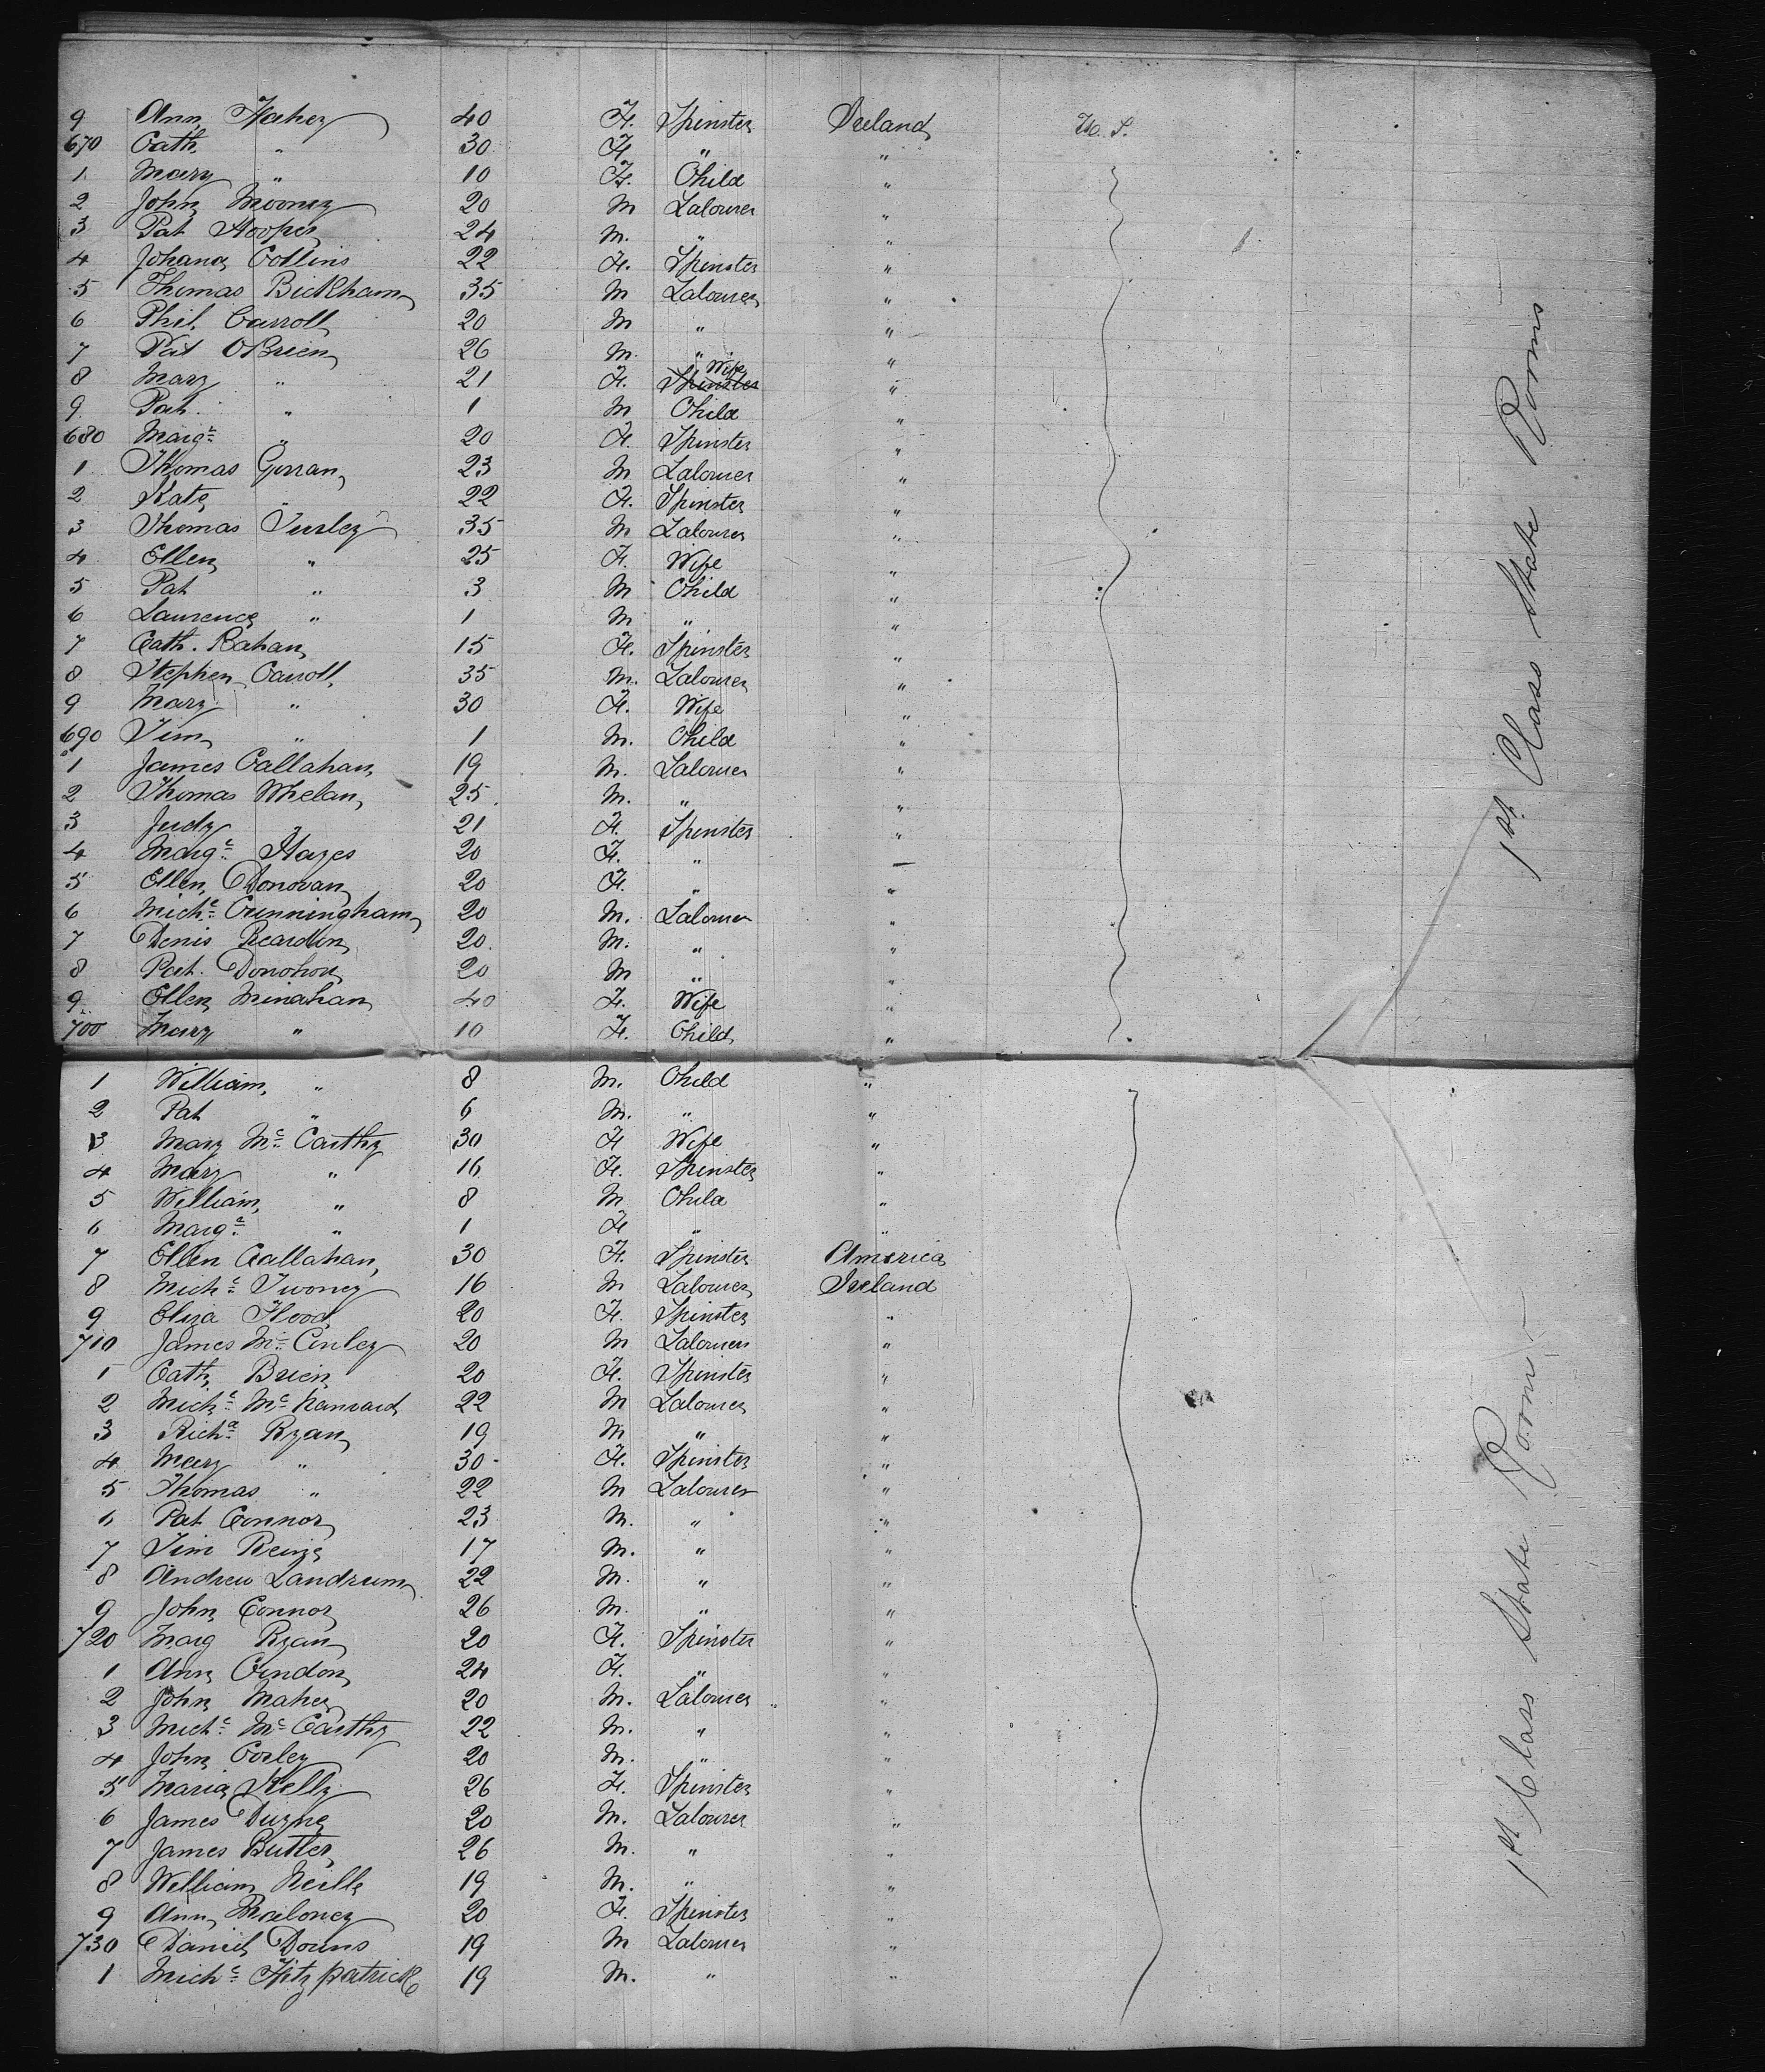 9 Ann Fahey 40 F. Spinster Ireland U. S.
670 Cath. " 30 F " "
1 Mary " 10 F. Child "
2 John Mooney 20 M Labourer "
3 Pat Hooper 24 M. " "
4 Johana Collins 22 F. Spinster "
5 Thomas Bickham 35 M Labourer "
6 Phil. Carroll 20 M " "
7 Pat OBrien 26 M. " "
8 Mary " 21 F. Spinster Wife "
9 Pat. " 1 M Child "
680 Margt " 20 F. Spinster "
1 Thomas 23 M Labourer "
2 Kate " 22 F. Spinster "
3 Thomas Turley 35 M Labourer "
4 Ellen " 25 F. Wife "
5 Pat " 3 M Child "
6 Laurence " 1 M " "
7 Cath. Kahan 15 F. Spinster "
8 Stephen Carroll 35 M. Labourer "
9 Mary " 30 F. Wife "
690 Tim " 1 M. Child "
1 James Callahan 19 M. Labourer "
2 Thomas Whelan 25. M. " "
3 Judy 21 F. Spinster "
4 Margt Hayes 20 F. " –
5 Ellen Donovan 20 F. " "
6 Michl Cunningham 20 M. Labourer "
7 Denis Reardon 20. M. " "
8 Pat. Donohou 20 M " "
9 Ellen Minahan 40 F. Wife "
700 Mary " 10 F. Child "
1 William " 8 M. Child "
2 Pat " 6 M. " "
3 Mary Mc Carthy 30 F Wife "
4 Mary " 16 F. Spinster "
5 William " 8 M Child "
6 Margt " 1 F " "
7 Ellen Callahan 30 F. Spinster America
8 Michl Twoney 16 M Labourer Ireland
9 Eliza Flood 20 F. Spinster "
710 James Mc Cauley 20 M Labourer "
1 Cath Brien 20 F. Spinster "
2 Michl Mc 22 M Labourer "
3 Richd Ryan 19 M " "
4 Mary " 30 F. Spinster "
5 Thomas " 22 M Labourer "
6 Pat Connor 23 M. " "
7 Tim 17 M. " "
8 Andrew Landrum 22 M. " "
9 John Connor 26 M. " "
720 Marg Ryan 20 F. Spinster "
1 Ann Condon 24 F. " "
2 John Maher 20 M. Labourer "
3 Michl Mc Carthy 22 M. " "
4 John Corley 20 M. " "
5 Maria Kelly 26 F. Spinster "
6 James Duyne 20 M. Labourer "
7 James Butler 26 M. " "
8 William Neille 19 M. " "
9 Ann Maloney 20 F. Spinster "
730 Daniel Downs 19 M Labourer "
1 Michl Fitzpatrick 19 M. " "
1st Class State Rooms
1st Class State Rooms